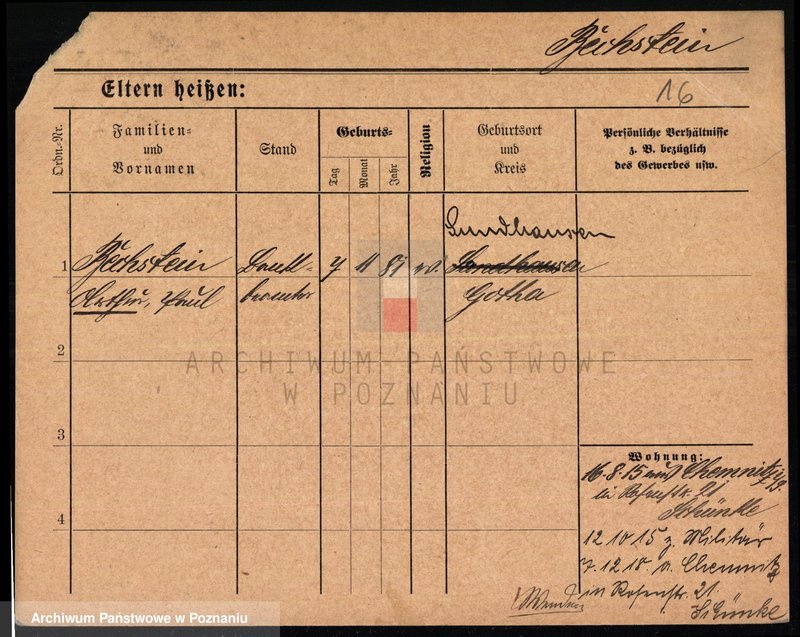 Bechstein
Eltern heißen:
16
Ordn.-Nr.
Familien-
und
Vornamen
Stand
Geburts-
Tag
Monat
Jahr
Religion
Geburtsort
und
Kreis
Persönliche Verhältnisse
z. B. bezüglich
des Gewerbes usw.
Gundhausen
1
Bechstein
Bank-
7 11 81 ev.
Sandhausen
Arthur, Paul
beamter
Gotha
2
ARCHIWUM PAŃSTWOWE
W POZNANIU
3
Wohnung:
16.8.15 aus Chemnitz
in Rosenstr. 21
Schünke
4
12 10 15 z. Militär
7.12.18 a. Chemnitz
in Rosenstr. 21.
Wenden
Schünke
Archiwum Państwowe w Poznaniu